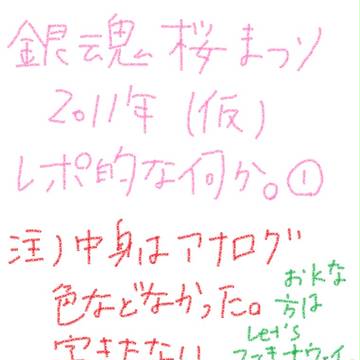 銀魂桜まつり
2011年(仮)
レポ的な何か。①
注)中身はアナログ
色などなかった。
おkな
方は
Let's
字きたない